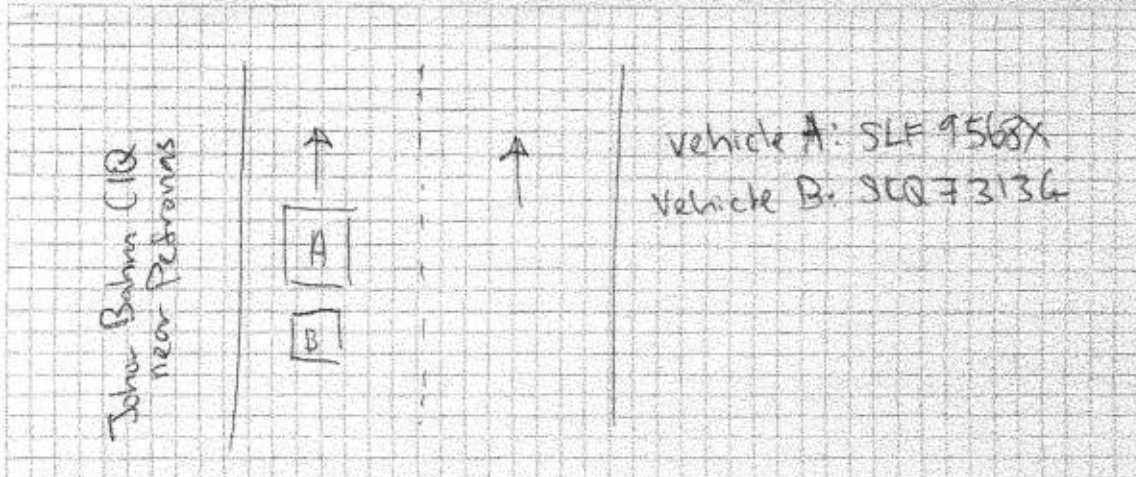 Johor Bahru CIQ
near Petronas
A
B
Vehicle A: SLF 9568X
Vehicle B: SLQ7313G